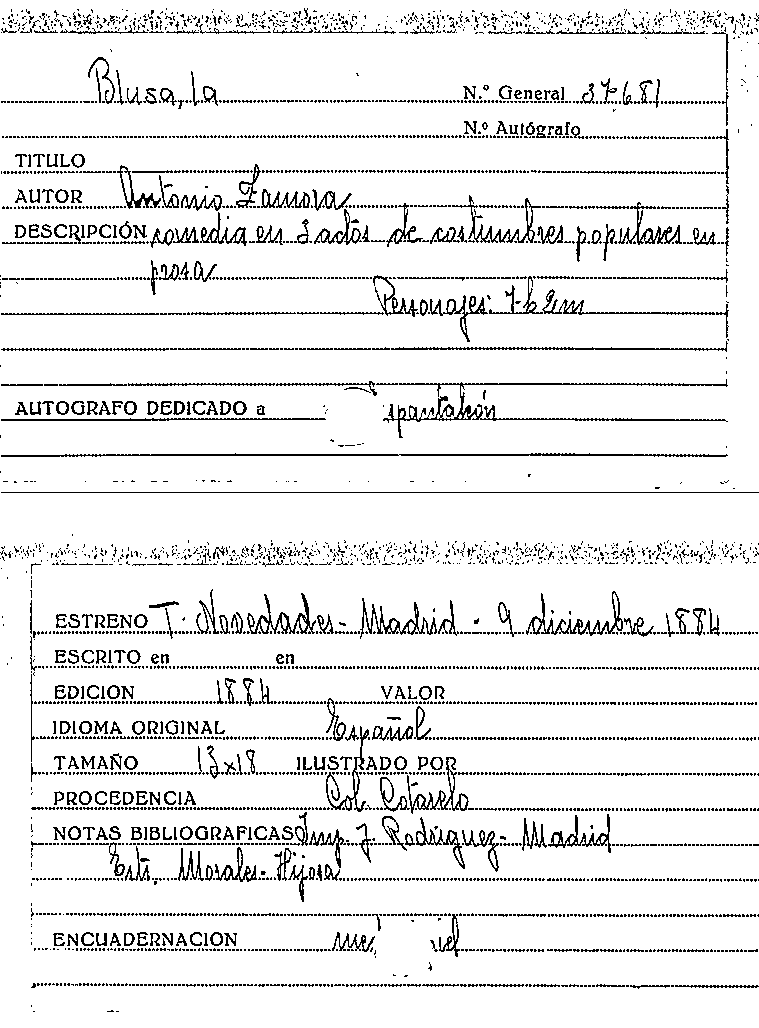 Blusa, la
N.º General 37681
N.º Autógrafo
TITULO
AUTOR Antonio Zamora
DESCRIPCIÓN comedia en 3 actos de costumbres populares en
prosa
Personajes: 7h 2m
AUTOGRAFO DEDICADO a
ESTRENO T. Novedades - Madrid - 9 diciembre 1884
ESCRITO en en
EDICION 1884 VALOR
IDIOMA ORIGINAL Español
TAMAÑO 13x18 ILUSTRADO POR
PROCEDENCIA Col. Cotarelo
NOTAS BIBLIOGRAFICAS Imp. J. Rodríguez - Madrid
Morales - Hijosa
ENCUADERNACION